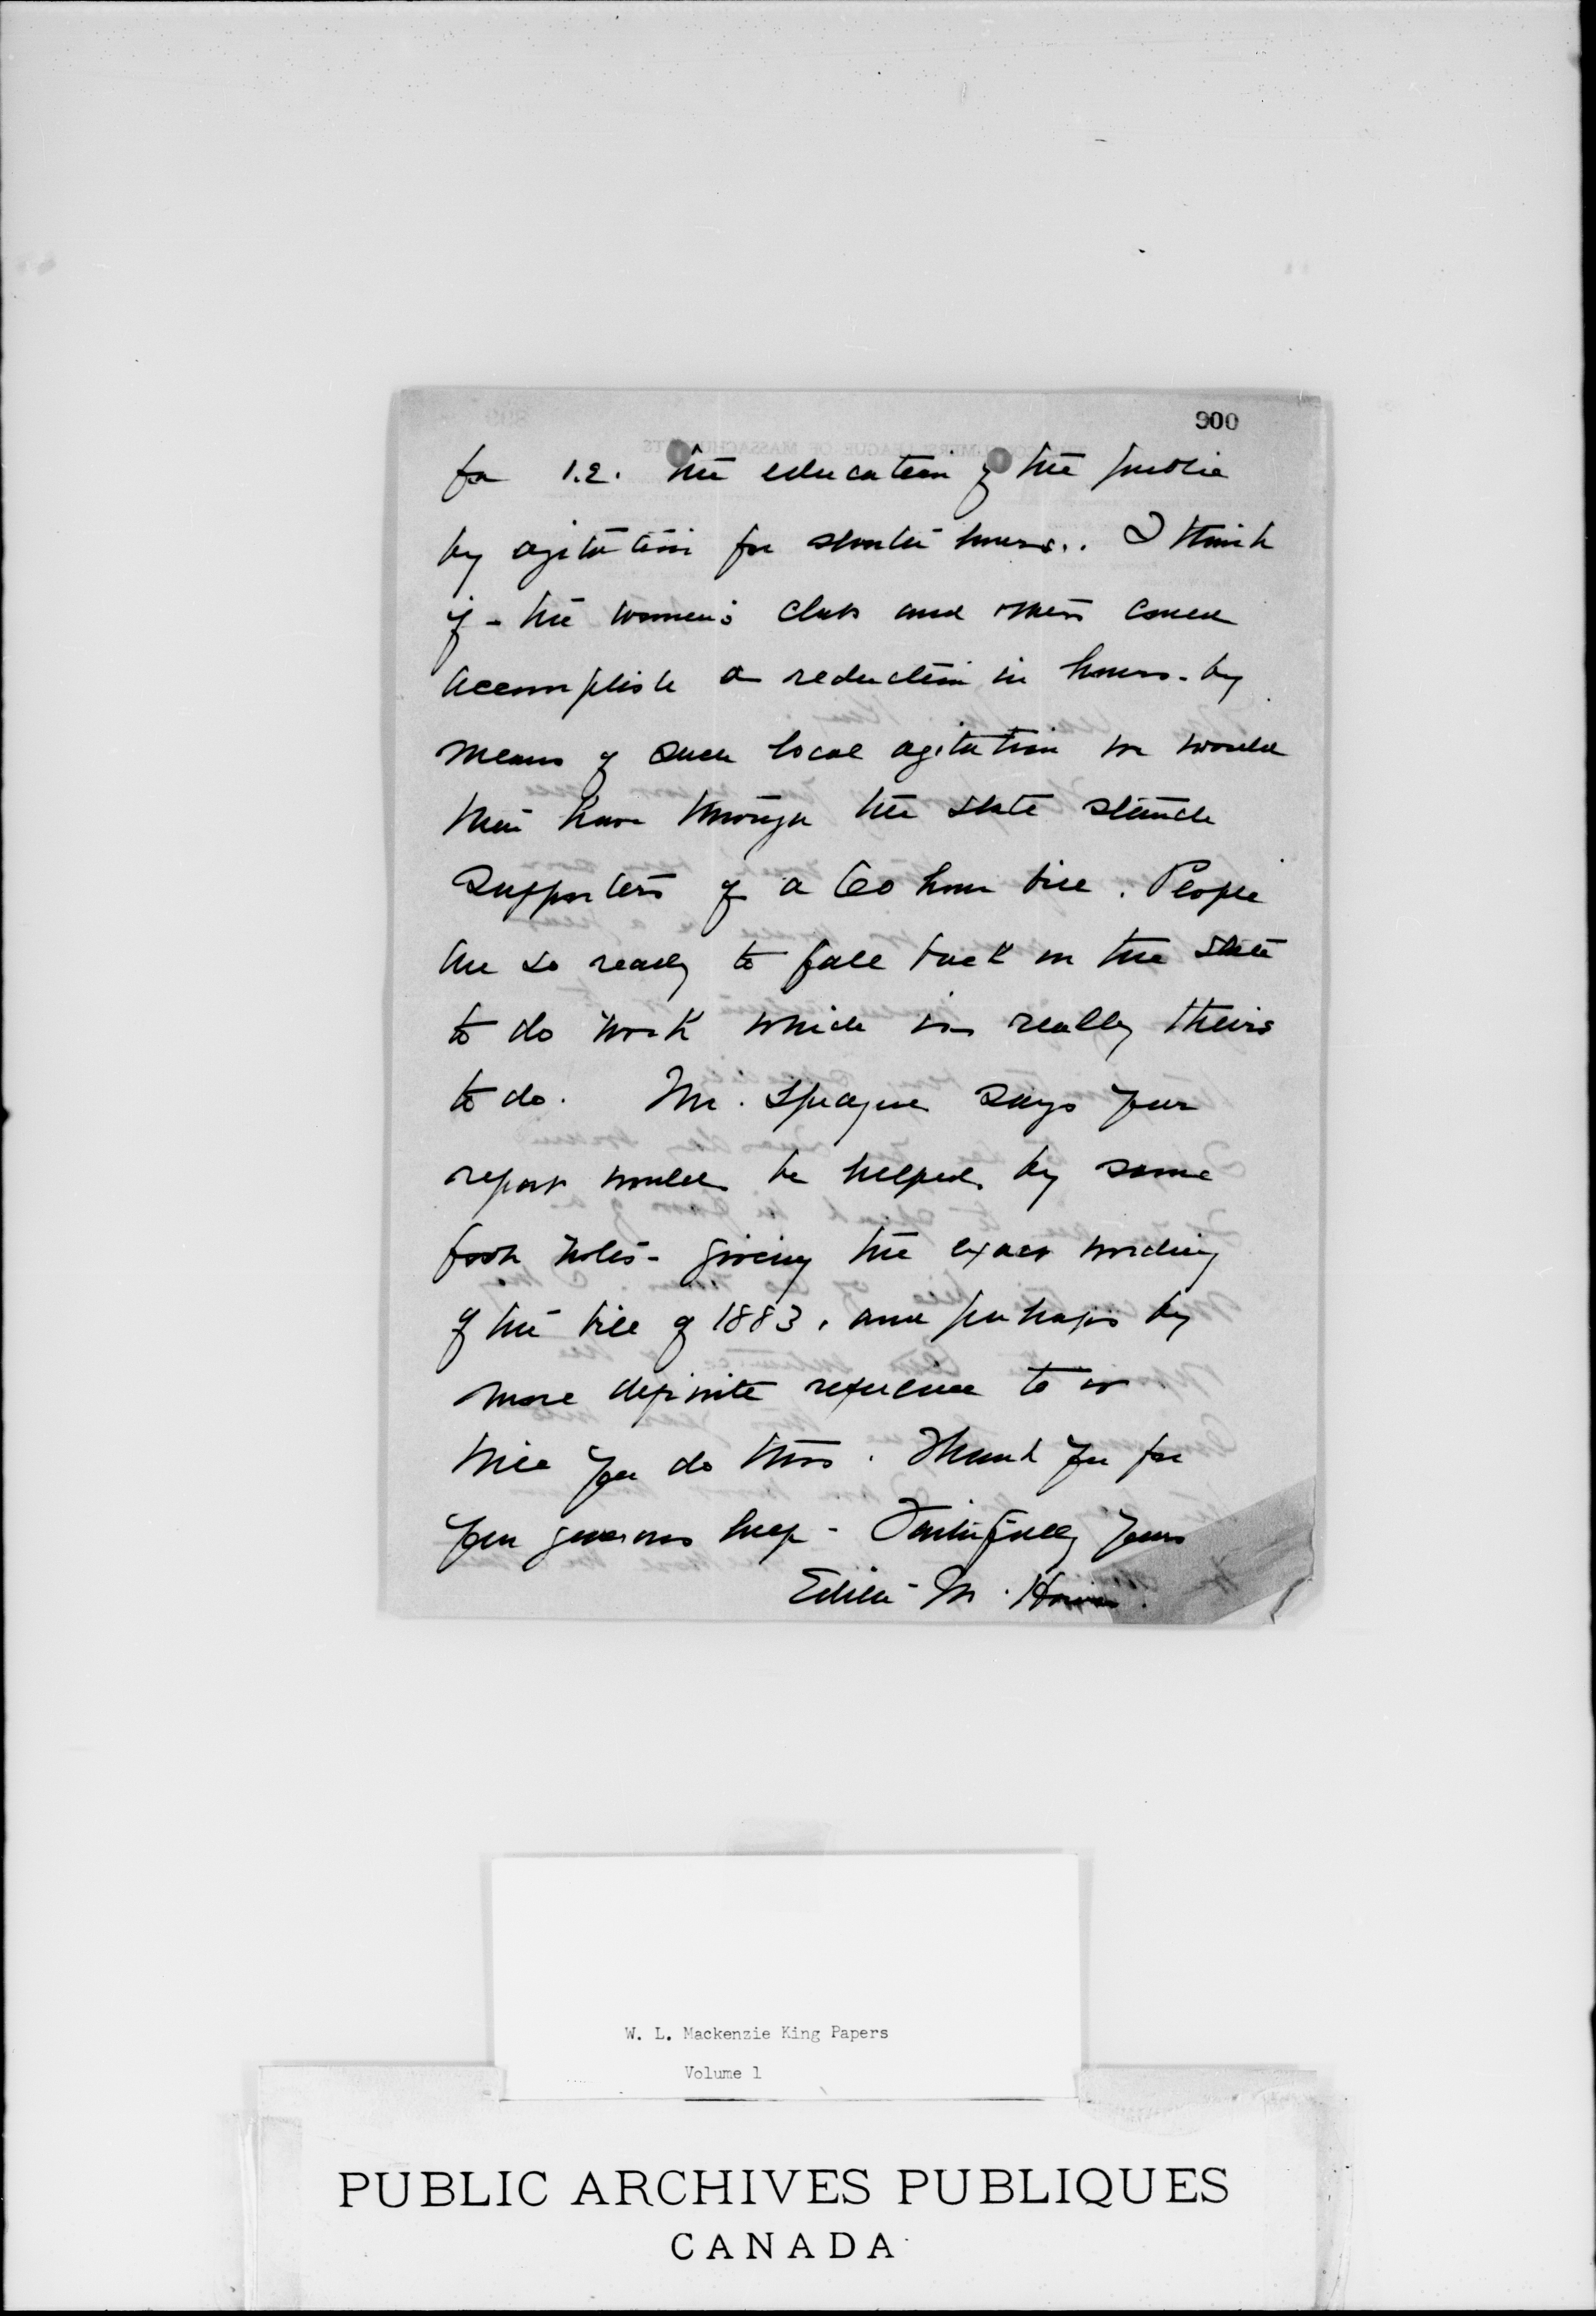 900
for i.e. the education of the public
by agitation for shorter hours.. I think
if - the women's clubs and others could
accomplish a reduction in hours - by
means of such local agitation we would
then have through the state staunch
supporters of a 60 hour bill. People
are so ready to fall back on the state
to do work which is really theirs
to do. Mr. Sprague says your
report would be helped by some
foot notes - giving the exact wording
of the bill of 1883, and perhaps by
more definite reference to it
Will you do this. Thank you for
your generous help - Faithfully yours
Edith M. Howes.
W. L. Mackenzie King Papers
Volume 1
PUBLIC ARCHIVES PUBLIQUES
CANADA